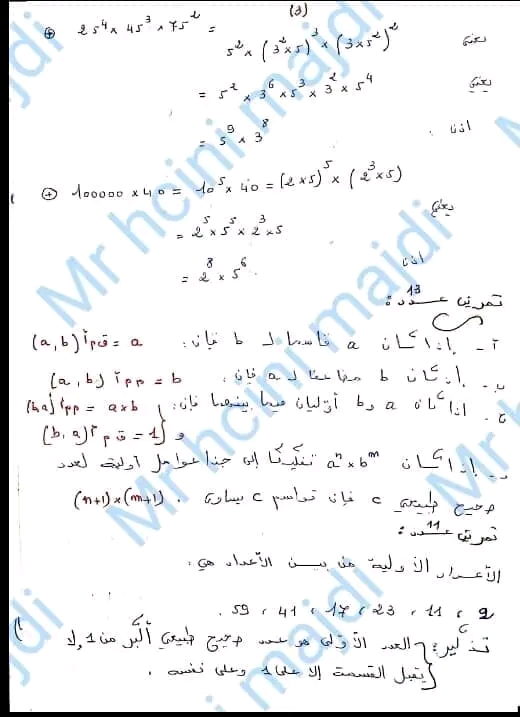 (3)
⊕ 25⁴ × 45³ × 75² =
يعني 5² × (3² × 5)³ × (3 × 5²)²
يعني = 5² × 3⁶ × 5³ × 3² × 5⁴
اذن : = 5⁹ × 3⁸
⊕ 100000 × 40 = 10⁵ × 40 = (2 × 5)⁵ × (2³ × 5)
يعني
= 2⁵ × 5⁵ × 2³ × 5
اذن
= 2⁸ × 5⁶
تمرين عــدد 13 :
أ - إذا كان a قاسما لـ b فإن : ق م أ (a, b) = a
ب - إذا كان b مضاعفا لـ a فإن : م م أ (a, b) = b
ج - اذا كان a و b أوليان فيما بينهما فإن : م م أ (b, a) = a×b
و ق م أ (b, a) = 1
د - إذا كان aⁿ × bᵐ تفكيكا إلى جذاء عوامل أولية لعدد
صحيح طبيعي c فإن قواسم c يساوي (n+1)×(m+1) .
تمرين عــدد 11 :
الأعداد الأولية من بين الأعداد هي :
2 ، 11 ، 23 ، 17 ، 41 ، 59 .
تذكير : العدد الأولي هو عدد صحيح طبيعي أكبر من 1 ، لا
يقبل القسمة إلا على 1 وعلى نفسه .
Mr hcini majdi
Mr hcini majdi
Mr hcini majdi